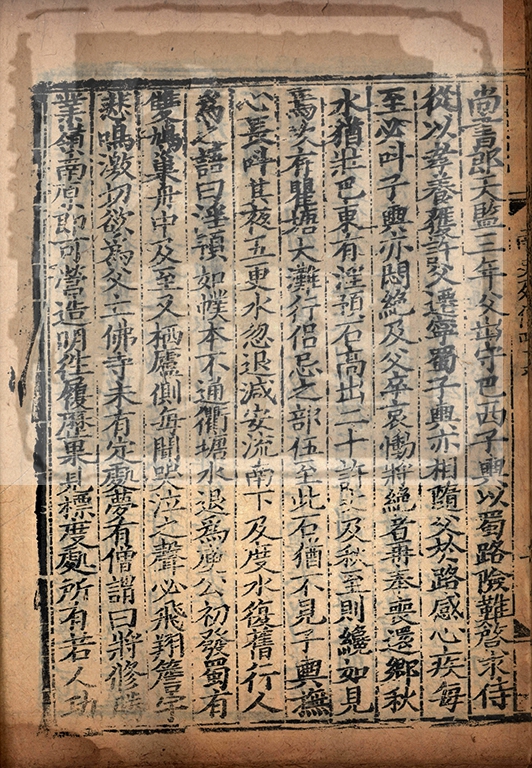 尚書郎天監三年父出守巴西子輿以蜀路險難啓求侍
從以孝養獲許父遷寧蜀子輿亦相隨父於路感心疾每
至必叫子輿亦悶絕及父卒哀慟將絕者再奉喪還鄉秋
水猶壯巴東有淫預石高出二十許丈及秋至則纔如見
焉次有瞿塘大灘行侶忌之部伍至此石猶不見子輿撫
心長叫其夜五更水忽退減安流南下及度水復舊行人
為之語曰淫預如幞本不通衢塘水退為庾公初發蜀有
雙鳩巢舟中及至又栖廬側每聞哭泣之聲必飛翔簷宇
悲鳴激切欲為父立佛寺未有定處夢有僧謂曰將修勝
業嶺南原即可營造明往履歷果見標度處所有若人功